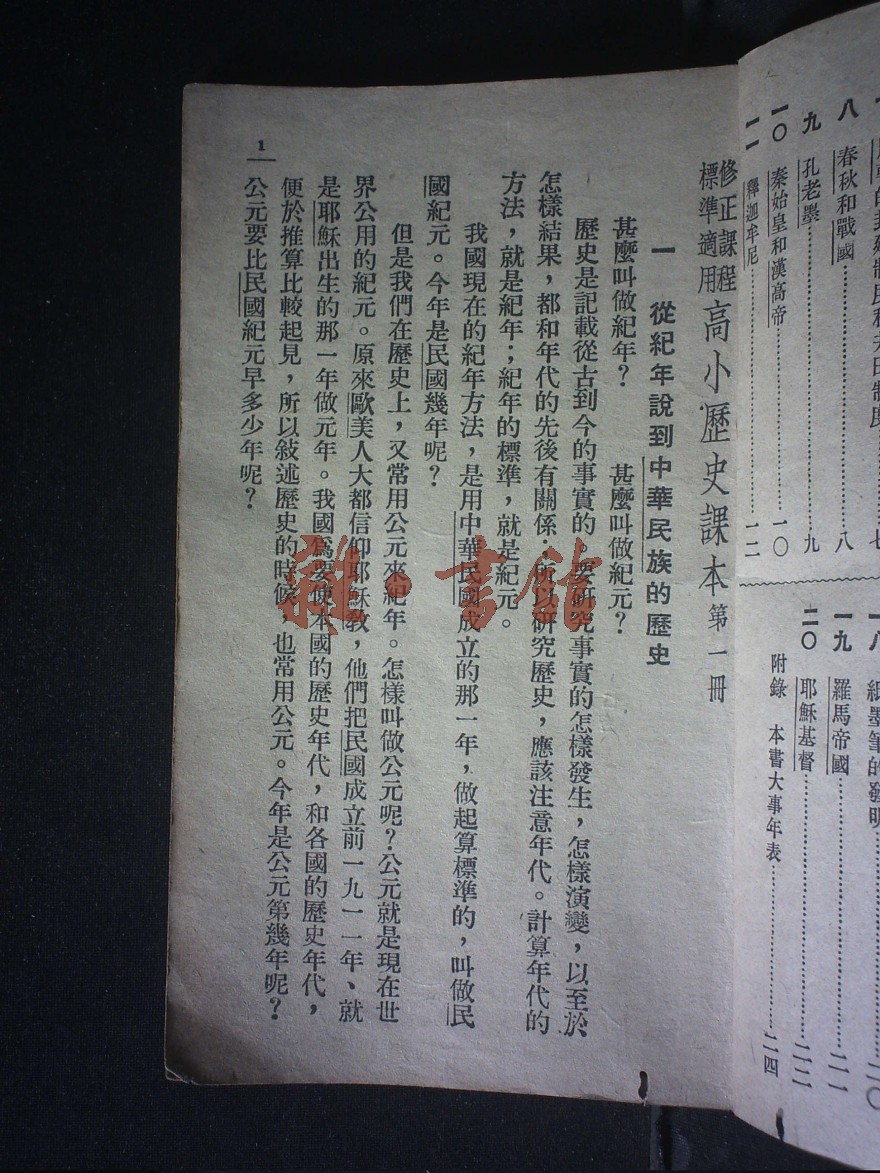 八　春秋和戰國……………八
九　孔老墨……………九
一〇　秦始皇和漢高帝……………一〇
一一　釋迦牟尼……………一二
一九　羅馬帝國……………二一
二〇　耶穌基督……………二二
附錄　本書大事年表……………二四
修正課程
標準適用
高小歷史課本 第一冊
一　從紀年說到中華民族的歷史
甚麼叫做紀年？　甚麼叫做紀元？
歷史是記載從古到今的事實的。要研究事實的怎樣發生，怎樣演變，以至於
怎樣結果，都和年代的先後有關係；所以研究歷史，應該注意年代。計算年代的
方法，就是紀年；紀年的標準，就是紀元。
我國現在的紀年方法，是用中華民國成立的那一年，做起算標準的，叫做民
國紀元。今年是民國幾年呢？
但是我們在歷史上，又常用公元來紀年。怎樣叫做公元呢？公元就是現在世
界公用的紀元。原來歐美人大都信仰耶穌教，他們把民國成立前一九一一年、就
是耶穌出生的那一年做元年。我國爲要使本國的歷史年代，和各國的歷史年代，
便於推算比較起見，所以敍述歷史的時候，也常用公元。今年是公元第幾年呢？
公元要比民國紀元早多少年呢？
1
雜·書館